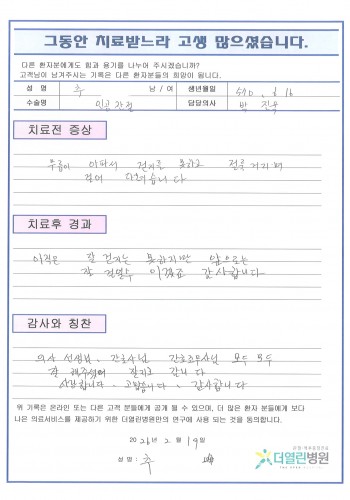 그동안 치료받느라 고생 많으셨습니다.
다른 환자분에게도 힘과 용기를 나누어 주시겠습니까?
고객님이 남겨주시는 기록은 다른 환자분들의 희망이 됩니다.
성 명 추 남 / 여 생년월일
수술명 인공관절 담당의사 박 진욱
치료전 증상
무릎이 아파서 걷지를 못하고 절룩거리며
걸어 다녔습니다
치료후 경과
아직은 잘 걷지는 못하지만 앞으로는
잘 걸을수 있겠죠 감사합니다
감사와 칭찬
의사 선생님, 간호사님 간호조무사님 모두 모두
잘 해주셔서 잘지고 갑니다
사랑합니다. 고맙습니다. 감사합니다
위 기록은 온라인 또는 다른 고객 분들에게 공개 될 수 있으며, 더 많은 환자 분들에게 보다
나은 의료서비스를 제공하기 위한 더열린병원만의 연구에 사용 되는 것을 동의합니다.
2026년 2월 19일
성 명 : 추
더열린병원